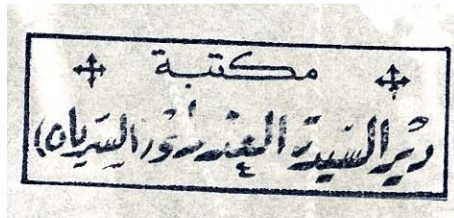 مكتبة
دير السيدة العذراء (السريان)